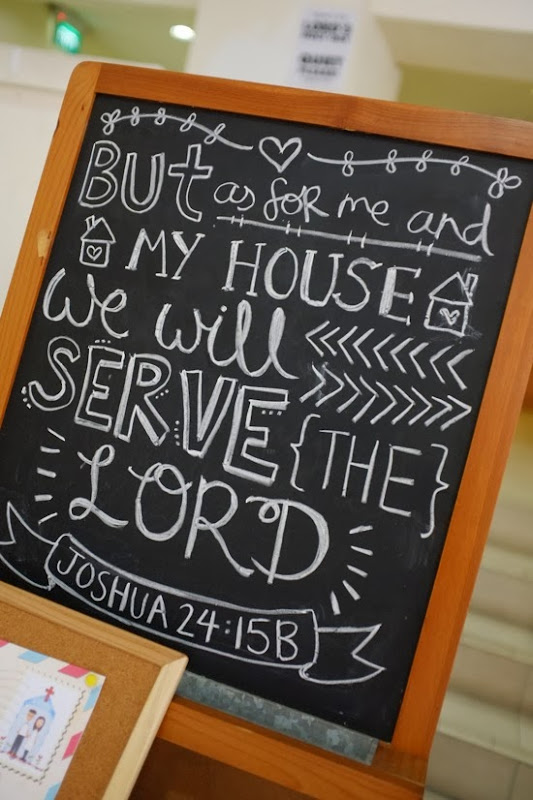 But as for me and
MY HOUSE
we will
SERVE {THE}
LORD
JOSHUA 24:15B